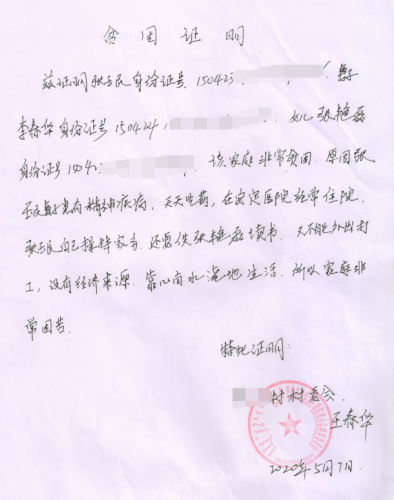 贫困证明
兹证明张玉民身份证号15042 妻子
李春华身份证号150424 女儿张艳磊
身份证号1504 该家庭非常贫困.原因张
玉民妻子患有精神疾病,天天吃药,在安定医院经常住院.
张玉民自己操持家务.还要供张艳磊读书.又不能外出打
工,没有经济来源.靠 水浇地生活.所以家庭非
常困苦.
特此证明:
村村委会
王春华
2020年5月7日.